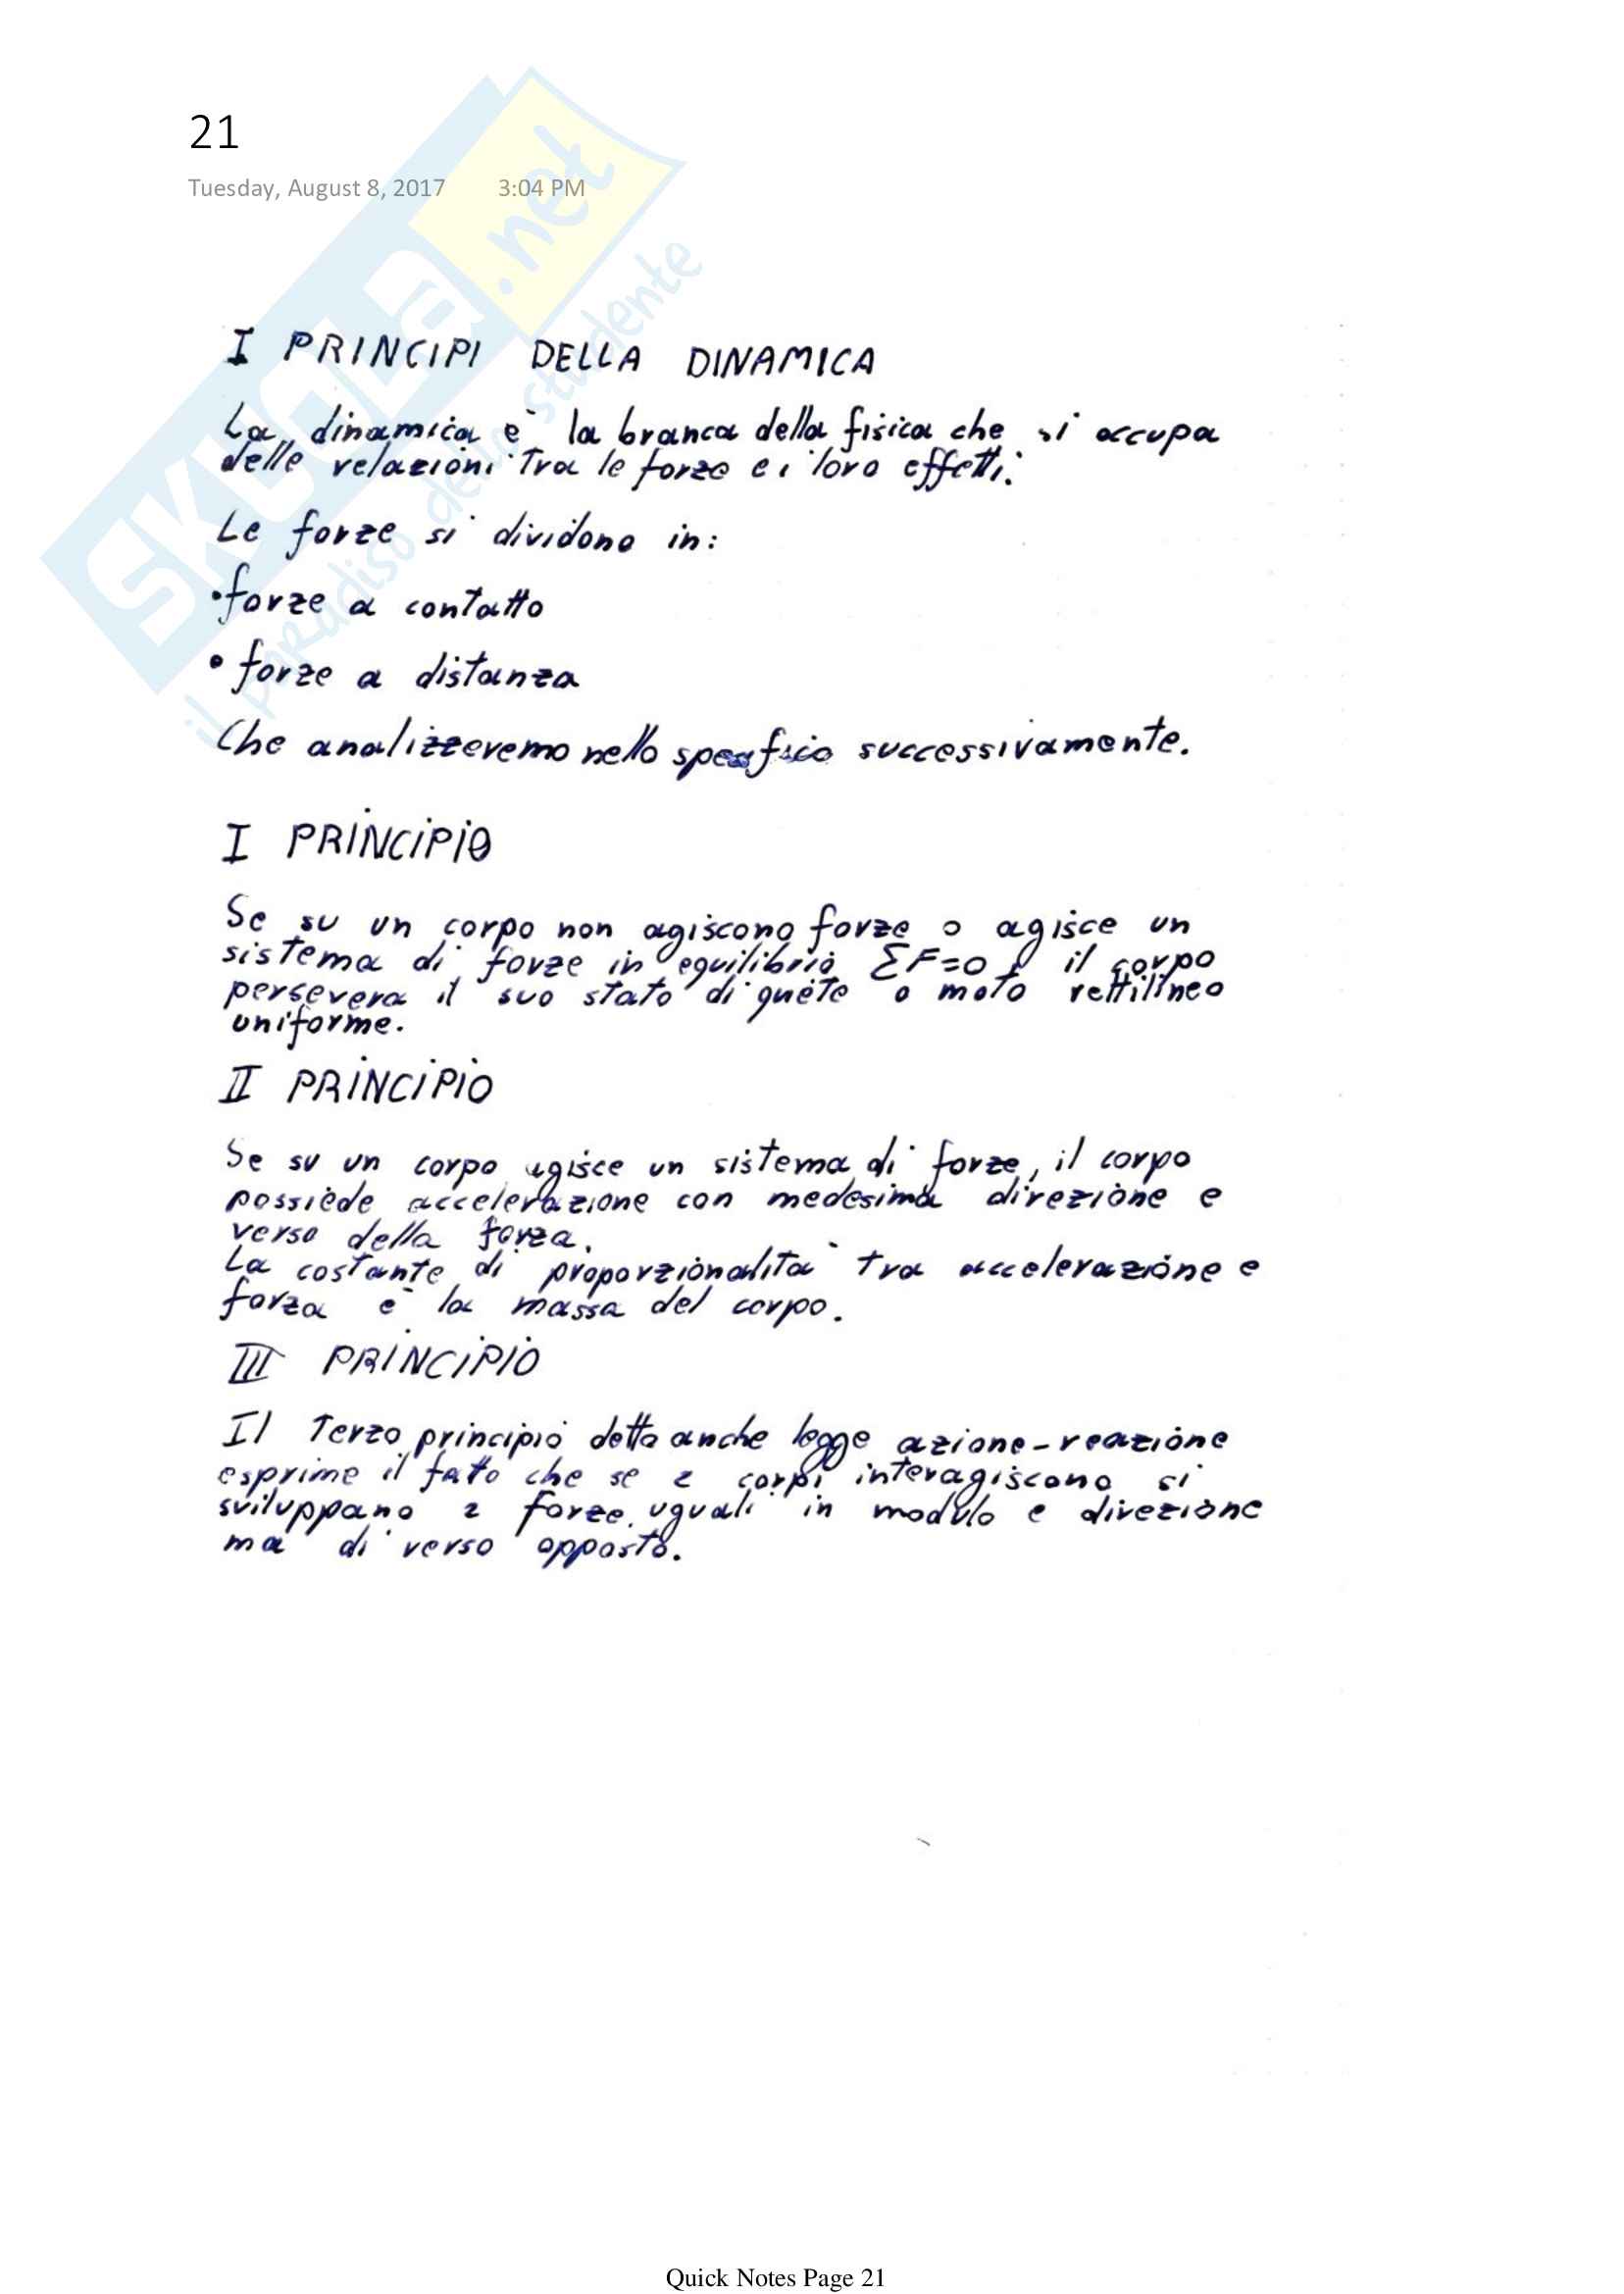 21
Tuesday, August 8, 2017 3:04 PM
SKUOLa.net
il paradiso dello studente
I PRINCIPI DELLA DINAMICA
La dinamica è la branca della fisica che si occupa
delle relazioni tra le forze e i loro effetti.
Le forze si dividono in:
•forze a contatto
• forze a distanza
Che analizzeremo nello successivamente.
I PRINCIPIO
Se su un corpo non agiscono forze o agisce un
sistema di forze in equilibrio ΣF=0, il corpo
persevera il suo stato di quiete o moto rettilineo
uniforme.
II PRINCIPIO
Se su un corpo agisce un sistema di forze, il corpo
possiede accelerazione con medesima direzione e
verso della forza.
La costante di proporzionalità tra accelerazione e
forza è la massa del corpo.
III PRINCIPIO
Il Terzo principio detto anche legge azione-reazione
esprime il fatto che se 2 corpi interagiscono si
sviluppano 2 forze uguali in modulo e direzione
ma di verso opposto.
Quick Notes Page 21